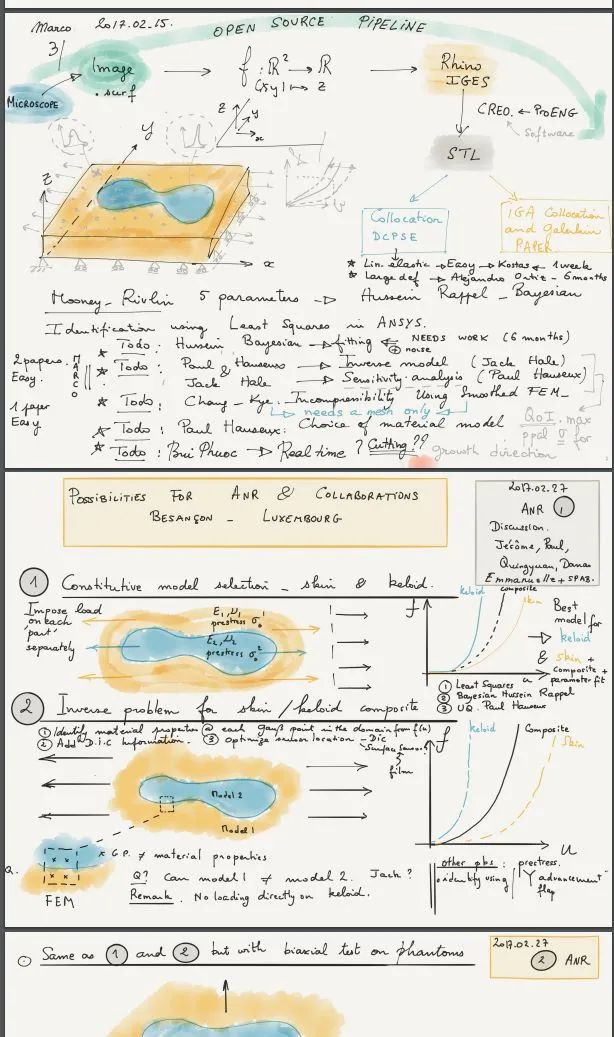 Marco 2017.02.15.
3
OPEN SOURCE PIPELINE
Image
. surf
f : ℝ² → ℝ
(x,y) → z
Rhino
IGES
MICROSCOPE
CREO. ← ProENG
Software
STL
z
y
x
z
y
x
Collocation
DCPSE
IGA Collocation
and Galerkin
PAPER
* Lin. elastic → Easy → Kostas ← 1 week
* Large def → Alejandro Ortiz - 6 months
Mooney-Rivlin 5 parameters → Hussein Rappel - Bayesian
Identification using Least Squares in ANSYS.
* Todo: Husein Bayesian → fitting ⇐ NEEDS WORK (6 months)
⊕ noise
2 papers
Easy.
MARCO
* Todo: Paul & Hauseux → Inverse model (Jack Hale)
Jack Hale → Sensitivity analysis (Paul Hauseux)
1 paper
Easy
* Todo: Chang-Kye: Incompressibility Using Smoothed FEM_
needs a mesh only
* Todo: Paul Hauseux: Choice of material model
QoI. max
ppal σ for
* Todo: Bui Phuoc → Real time ? Cutting??
growth direction
POSSIBILITIES FOR ANR & COLLABORATIONS
BESANÇON - LUXEMBOURG
2017.02.27
ANR 1
Discussion.
Jérôme, Paul,
Qingyuan, Danas
Emmanuelle + SPAB.
1 Constitutive model selection - skin & keloid.
Impose load
on each
"part"
separately
E₁, ν₁
prestress σ₀¹
E₂, ν₂
prestress σ₀²
f
keloid
composite
skin
u
Best
model for
→ keloid
& skin +
composite +
parameter fit
1 Least Squares
2 Bayesian Hussein Rappel
3 UQ. Paul Hauseux
2 Inverse problem for skin/keloid composite
1 Identify material properties @ each gauß point in the domain from f(u)
2 Add D.i.C information. 3 optimize sensor location - Dic
Surface sensor
film
Model 2
Model 1
f
keloid
Composite
Skin
u
* G.P. ≠ material properties
FEM
Q? Can model 1 ≠ model 2. Jack?
Remark. No loading directly on keloid.
other pbs: prestress.
identify using "Y advancement flap"
Same as 1 and 2 but with biaxial test on phantoms
2017.02.27
2 ANR